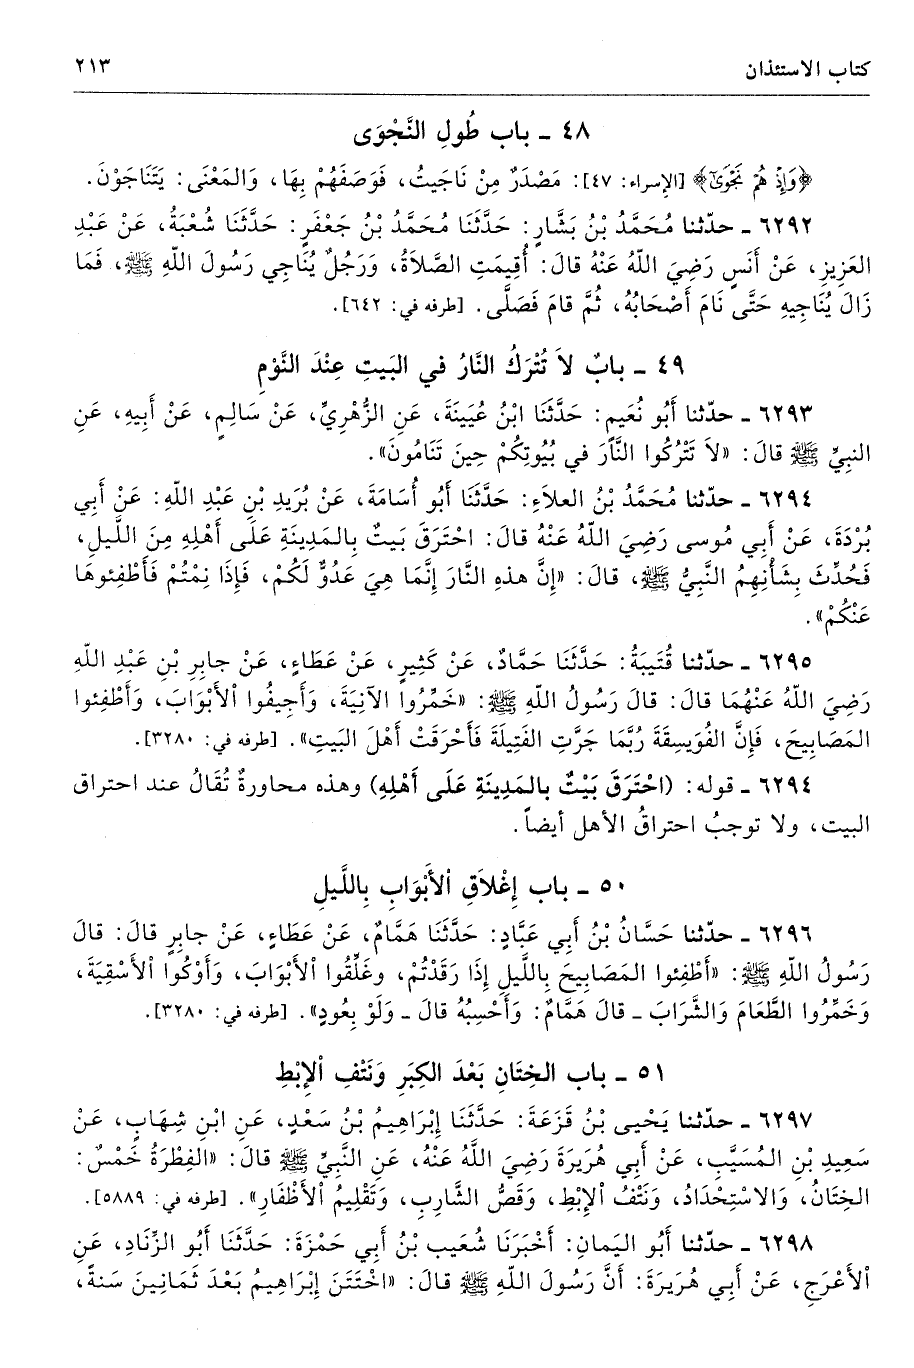 كتاب الاستئذان ٢١٣
٤٨ - باب طُولِ النَّجْوَى
﴿وَإِذْ هُمْ نَجْوَىٰٓ﴾ [الإسراء: ٤٧]: مَصْدَرٌ مِنْ نَاجَيتُ، فَوَصَفَهُمْ بِهَا، وَالمَعْنَى: يَتَنَاجَوْنَ.
٦٢٩٢ - حدّثنا مُحَمَّدُ بْنُ بَشَّارٍ: حَدَّثَنَا مُحَمَّدُ بْنُ جَعْفَرٍ: حَدَّثَنَا شُعْبَةُ، عَنْ عَبْدِ
العَزِيزِ، عَنْ أَنَسٍ رَضِيَ اللّهُ عَنْهُ قالَ: أُقِيمَتِ الصَّلاَةُ، وَرَجُلٌ يُنَاجِي رَسُولَ اللّهِ ﷺ، فَمَا
زَالَ يُنَاجِيهِ حَتَّى نَامَ أَصْحَابُهُ، ثُمَّ قامَ فَصَلَّى. [طرفه في: ٦٤٢].
٤٩ - بابٌ لاَ تُتْرَكُ النَّارُ في البَيتِ عِنْدَ النَّوْمِ
٦٢٩٣ - حدّثنا أَبُو نُعَيمٍ: حَدَّثَنَا ابْنُ عُيَينَةَ، عَنِ الزُّهْرِيِّ، عَنْ سَالِمٍ، عَنْ أَبِيهِ، عَنِ
النبِيِّ ﷺ قالَ: «لاَ تَتْرُكُوا النَّارَ في بُيُوتِكُمْ حِينَ تَنَامُونَ».
٦٢٩٤ - حدّثنا مُحَمَّدُ بْنُ العلاَءِ: حَدَّثَنَا أَبُو أُسَامَةَ، عَنْ بُرَيدِ بْنِ عَبْدِ اللّهِ: عَنْ أَبِي
بُرْدَةَ، عَنْ أَبِي مُوسى رَضِيَ اللّهُ عَنْهُ قالَ: احْتَرَقَ بَيتٌ بِالمَدِينَةِ عَلَى أَهْلِهِ مِنَ اللَّيلِ،
فَحُدِّثَ بِشَأْنِهِمُ النَّبِيُّ ﷺ، قالَ: «إِنَّ هذهِ النَّارَ إِنَّمَا هِيَ عَدُوٌّ لَكُمْ، فَإِذَا نِمْتُمْ فَأَطْفِئوهَا
عَنْكُمْ».
٦٢٩٥ - حدّثنا قُتَيبَةُ: حَدَّثَنَا حَمَّادٌ، عَنْ كَثِيرٍ، عَنْ عَطَاءٍ، عَنْ جابِرِ بْنِ عَبْدِ اللّهِ
رَضِيَ اللّهُ عَنْهُمَا قالَ: قالَ رَسُولُ اللّهِ ﷺ: «خَمِّرُوا الآنِيَةَ، وَأَجِيفُوا الأَبْوَابَ، وَأَطْفِئوا
المَصَابِيحَ، فَإِنَّ الفُوَيسِقَةَ رُبَّمَا جَرَّتِ الفَتِيلَةَ فَأَحْرَقَتْ أَهْلَ البَيتِ». [طرفه في: ٣٢٨٠].
٦٢٩٤ - قوله: (احْتَرَقَ بَيْتٌ بالمَدِينَةِ عَلَى أَهْلِهِ) وهذه محاورةٌ تُقَالُ عند احتراق
البيت، ولا توجبُ احتراقُ الأهل أيضاً.
٥٠ - باب إِغْلاَقِ الأَبْوَابِ بِاللَّيلِ
٦٢٩٦ - حدّثنا حَسَّانُ بْنُ أَبِي عَبَّادٍ: حَدَّثَنَا هَمَّامٌ، عَنْ عَطَاءٍ، عَنْ جابِرٍ قالَ: قالَ
رَسُولُ اللّهِ ﷺ: «أَطْفِئوا المَصَابِيحَ بِاللَّيلِ إِذَا رَقَدْتُمْ، وغَلِّقُوا الأَبْوَابَ، وَأَوْكُوا الأَسْقِيَةَ،
وَخَمِّرُوا الطَّعَامَ وَالشَّرَابَ - قالَ هَمَّامٌ: وَأَحْسِبُهُ قالَ - وَلَوْ بِعُودٍ». [طرفه في: ٣٢٨٠].
٥١ - باب الخِتَانِ بَعْدَ الكِبَرِ وَنَتْفِ الإِبْطِ
٦٢٩٧ - حدّثنا يَحْيى بْنُ قَزَعَةَ: حَدَّثَنَا إِبْرَاهِيمُ بْنُ سَعْدٍ، عَنِ ابْنِ شِهَابٍ، عَنْ
سَعِيدِ بْنِ المُسَيَّبِ، عَنْ أَبِي هُرَيرَةَ رَضِيَ اللّهُ عَنْهُ، عَنِ النَّبِيِّ ﷺ قالَ: «الفِطْرَةُ خَمْسٌ:
الخِتَانُ، وَالاسْتِحْدَادُ، وَنَتْفُ الإِبْطِ، وَقَصُّ الشَّارِبِ، وَتَقْلِيمُ الأَظْفَارِ». [طرفه في: ٥٨٨٩].
٦٢٩٨ - حدّثنا أَبُو اليَمانِ: أَخْبَرَنَا شُعَيب بْنُ أَبِي حَمْزَةَ: حَدَّثَنَا أَبُو الزِّنَادِ، عَنِ
الأَعْرَجِ، عَنْ أَبِي هُرَيرَةَ: أَنَّ رَسُولَ اللّهِ ﷺ قالَ: «اخْتَتَنَ إِبْرَاهِيمُ بَعْدَ ثَمَانِينَ سَنةً،